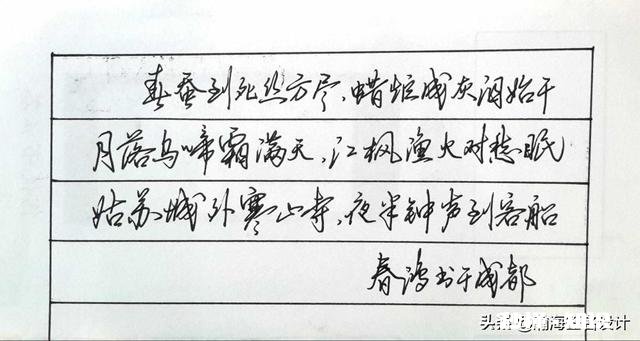 春蚕到死丝方尽,蜡炬成灰泪始干
月落乌啼霜满天,江枫渔火对愁眠
姑苏城外寒山寺,夜半钟声到客船
春鸿书于成都
头条
设计